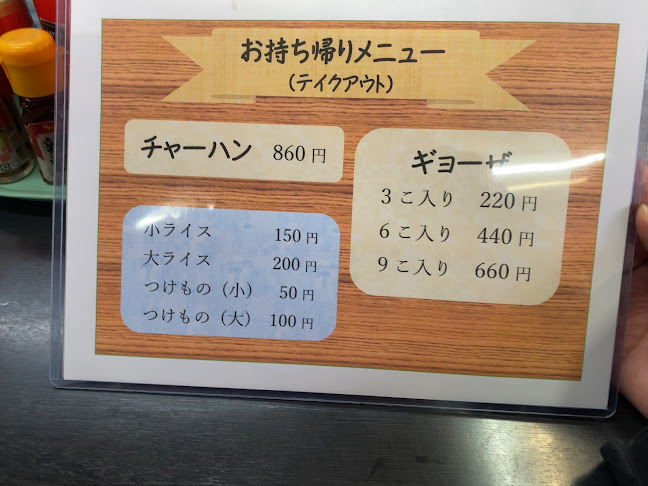 お持ち帰りメニュー
(テイクアウト)
チャーハン 860円
小ライス 150円
大ライス 200円
つけもの(小) 50円
つけもの(大) 100円
ギョーザ
3こ入り 220円
6こ入り 440円
9こ入り 660円